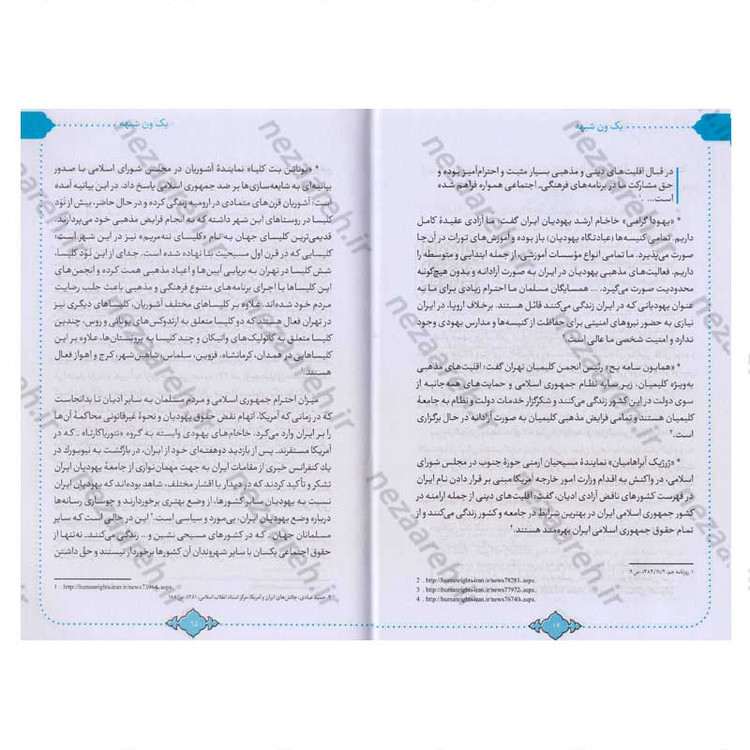 یک ون شبهه
در قبال اقلیت‌های دینی و مذهبی بسیار مثبت و احترام‌آمیز بوده و
حق مشارکت ما در برنامه‌های فرهنگی، اجتماعی همواره فراهم شده
است...
* «یهودا گرامی» خاخام ارشد یهودیان ایران گفت: ما آزادی عقیدهٔ کامل
داریم. تمامی کنیسه‌ها (عبادتگاه یهودیان) باز بوده و آموزش‌های تورات در آن‌جا
صورت می‌پذیرد. ما تمامی انواع مؤسسات آموزشی، از جمله ابتدایی و متوسطه را
داریم. فعالیت‌های مذهبی یهودیان در ایران به صورت آزادانه و بدون هیچ‌گونه
محدودیت صورت می‌گیرد. ... همسایگان مسلمان ما احترام زیادی برای ما به
عنوان یهودیانی که در ایران زندگی می‌کنند قائل هستند. برخلاف اروپا، در ایران
نیازی به حضور نیروهای امنیتی برای حفاظت از کنیسه‌ها و مدارس یهودی وجود
ندارد و امنیت شخصی ما عالی است.
* «همایون سامه یح» رئیس انجمن کلیمیان تهران گفت: اقلیت‌های مذهبی
به‌ویژه کلیمیان، زیر سایه نظام جمهوری اسلامی و حمایت‌های همه‌جانبه از
سوی دولت در این کشور زندگی می‌کنند و شکرگزار خدمات دولت و نظام به جامعهٔ
کلیمیان هستند و تمامی فرایض مذهبی کلیمیان به صورت آزادانه در حال برگزاری
است.
* «ژرژیک آبراهامیان» نمایندهٔ مسیحیان ارمنی حوزهٔ جنوب در مجلس شورای
اسلامی، در واکنش به اقدام وزارت امور خارجه آمریکا مبنی بر قرار دادن نام ایران
در فهرست کشورهای ناقض آزادی ادیان، گفت: اقلیت‌های دینی از جمله ارامنه در
کشور جمهوری اسلامی ایران در بهترین شرایط در جامعه و کشور زندگی می‌کنند و از
تمام حقوق جمهوری اسلامی ایران بهره‌مند هستند.
2 . http://humanrights-iran.ir/news78281.aspx.
3 . http://humanrights-iran.ir/news77972.aspx.
4 . http://humanrights-iran.ir/news76740.aspx.
یک ون شبهه
* «یوناتن بت کلیا» نمایندهٔ آشوریان در مجلس شورای اسلامی با صدور
بیانیه‌ای به شایعه‌سازی‌ها بر ضد جمهوری اسلامی پاسخ داد. در این بیانیه آمده
است: آشوریان قرن‌های متمادی در ارومیه زندگی کرده و در حال حاضر، بیش از نود
کلیسا در روستاهای این شهر داشته که به انجام فرایض مذهبی خود می‌پردازند.
قدیمی‌ترین کلیسای جهان به نام «کلیسای ننه‌مریم» نیز در این شهر است؛
کلیسایی که در قرن اول مسیحیت بنا نهاده شده است. جدای از این نود کلیسا،
شش کلیسا در تهران به برپایی آیین‌ها و اعیاد مذهبی همت کرده و انجمن‌های
این کلیساها با اجرای برنامه‌های متنوع فرهنگی و مذهبی باعث جلب رضایت
مردم خود شده‌اند. علاوه بر کلیساهای مختلف آشوریان، کلیساهای دیگری نیز
در تهران فعال هستند که دو کلیسا متعلق به ارتدوکس‌های یونانی و روس، چندین
کلیسا متعلق به کاتولیک‌های واتیکان و چند کلیسا به پروتستان‌ها، علاوه بر این
کلیساهایی در همدان، کرمانشاه، قزوین، سلماس، شاهین‌شهر، کرج و اهواز فعال
هستند.
میزان احترام جمهوری اسلامی و مردم مسلمان به سایر ادیان تا بدانجاست
که در زمانی که آمریکا، اتهام نقض حقوق یهودیان و نحوهٔ غیرقانونی محاکمهٔ آن‌ها
را بر ایران وارد می‌کرد، خاخام‌های یهودی وابسته به گروه «نتوریاکارتا» ـ که در
آمریکا مستقرند. پس از بازدید دوهفته‌ای خود از ایران، در بازگشت به نیویورک در
یک کنفرانس خبری از مقامات ایران به جهت مهمان‌نوازی از جامعهٔ یهودیان ایران
تشکر و تأکید کردند که در دیدار با اقشار مختلف، شاهد بوده‌اند که یهودیان ایران
نسبت به یهودیان سایر کشورها، از وضع بهتری برخوردارند و جوسازی رسانه‌ها
درباره وضع یهودیان ایران، بی‌مورد و سیاسی است. این در حالی است که سایر
مسلمانان جهان، که در کشورهای مسیحی نشین و... زندگی می‌کنند. نه‌تنها از
حقوق اجتماعی یکسان با سایر شهروندان آن کشورها برخوردار نیستند و حق داشتن
1 . http://humanrights-iran.ir/news73964.aspx.
۲. حمید عبادی، چالش‌های ایران و آمریکا، مرکز اسناد انقلاب اسلامی، ۱۳۸۱، ص ۱۸۸
nezaareh.ir